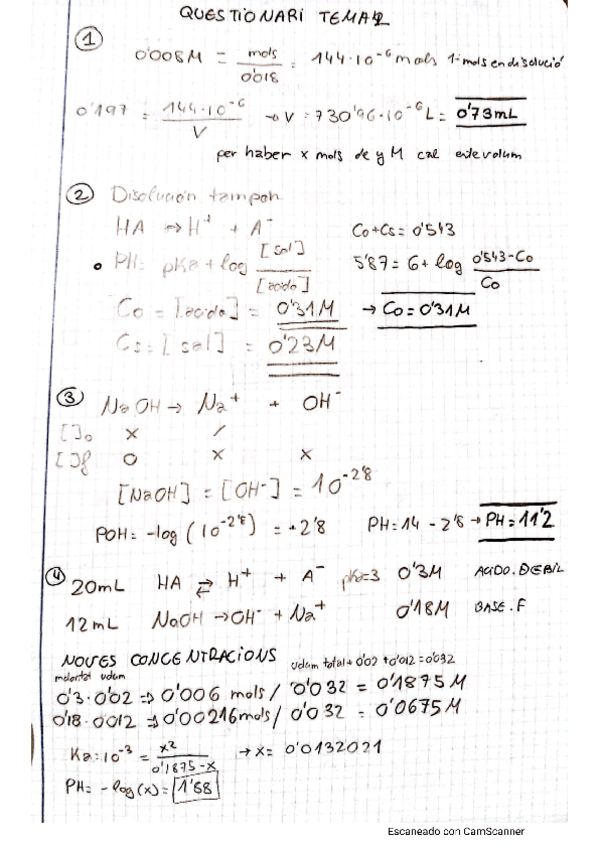 QUESTIONARI TEMA 4
1
0'008M = mols / 0'018 = 144·10⁻⁶ mols 1- mols en disolució
0'197 = 144·10⁻⁶ / V → V = 730'96·10⁻⁶ L = 0'73mL
per haber x mols de y M cal este volum
2 Disolución tampon
HA → H⁺ + A⁻
Co+Cs = 0'543
• PH = pKa + log [sal] / [acido]
5'87 = 6 + log 0'543-Co / Co
Co = [acido] = 0'31M → Co = 0'31M
Cs = [sal] = 0'23M
3 NaOH → Na⁺ + OH⁻
[]o x /
[]f 0 x x
[NaOH] = [OH⁻] = 10⁻²'⁸
POH = -log (10⁻²'⁸) = +2'8 PH = 14 - 2'8 → PH = 11'2
4 20mL HA ⇄ H⁺ + A⁻ pka=3 0'3M ACIDO. DEBIL
12mL NaOH → OH⁻ + Na⁺ 0'18M BASE. F
NOVES CONCENTRACIONS volum total = 0'02 + 0'012 = 0'032
volum
0'3·0'02 ⇒ 0'006 mols / 0'032 = 0'1875 M
0'18·0'012 ⇒ 0'00216 mols / 0'032 = 0'0675 M
Ka = 10⁻³ = x² / 0'1875-x → x = 0'0132021
PH = -log(x) = 1'88
Escaneado con CamScanner